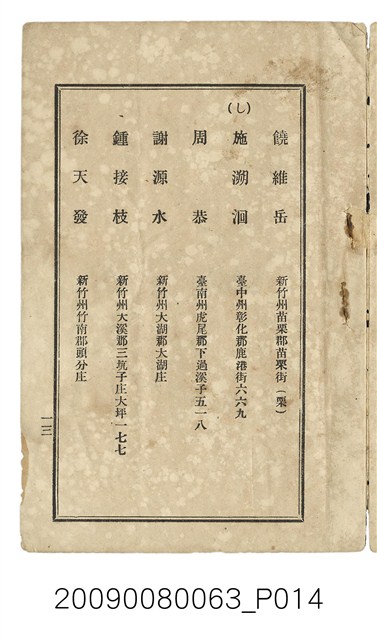 饒維岳 新竹州苗栗郡苗栗街(栗)
(し)
施溯洄 臺中州彰化郡鹿港街六六九
周恭 臺南州虎尾郡下過溪子五一八
謝源水 新竹州大湖郡大湖庄
鍾接枝 新竹州大溪郡三坑子庄大坪一七七
徐天發 新竹州竹南郡頭分庄
一三
20090080063_P014